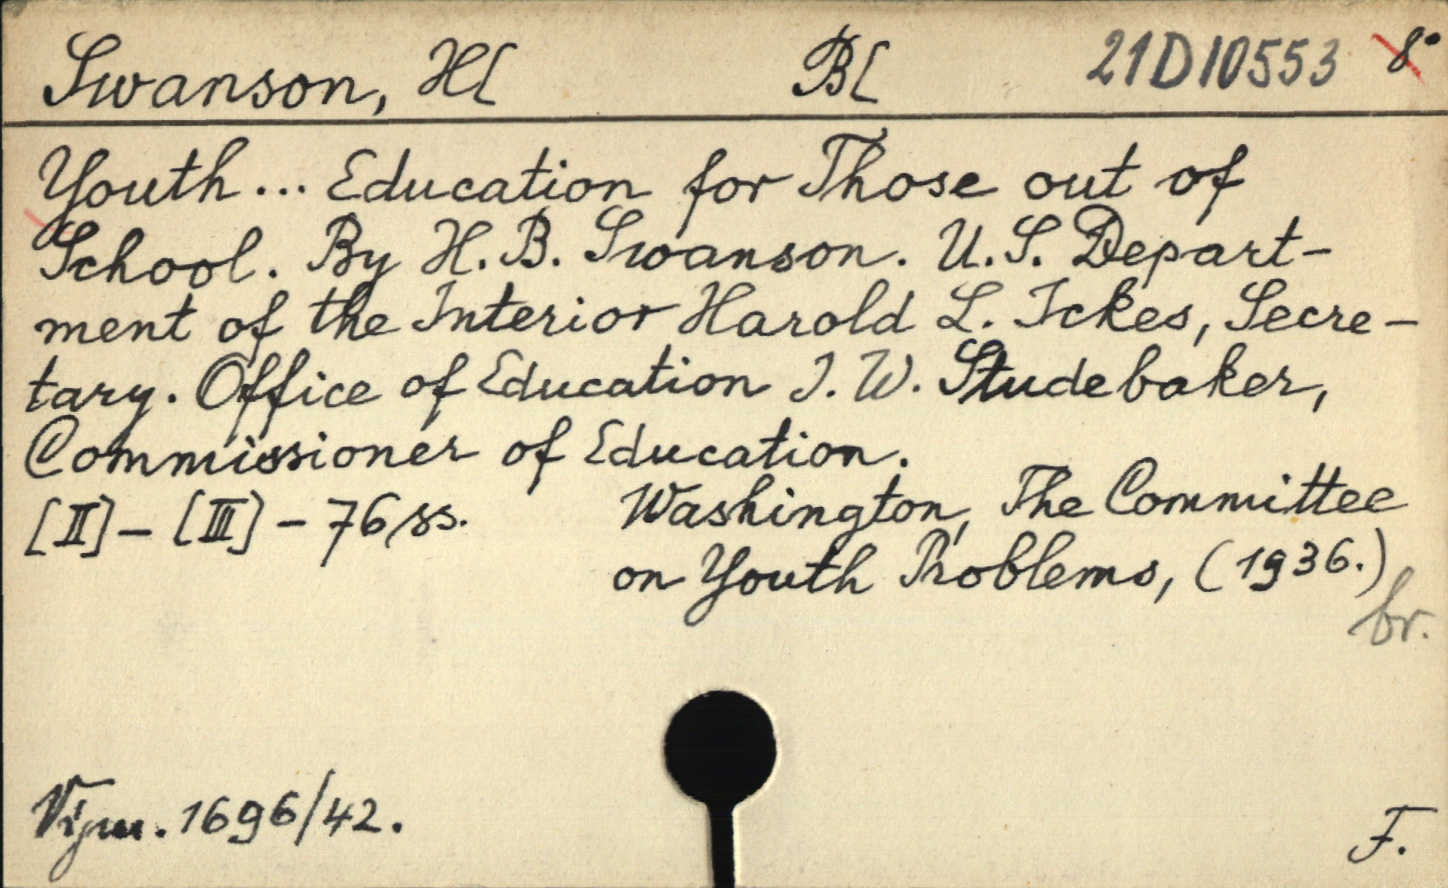 Swanson, H[ B[ 21D10553 8°
Youth... Education for Those out of
School. By H. B. Swanson. U.S. Depart-
ment of the Interior Harold L. Ickes, Secre-
tary. Office of Education J. W. Studebaker,
Commissioner of Education.
[II]-[III]-76 ss. Washington, The Committee
on Youth Problems, (1936.)
br.
Výjm. 1696/42.
F.